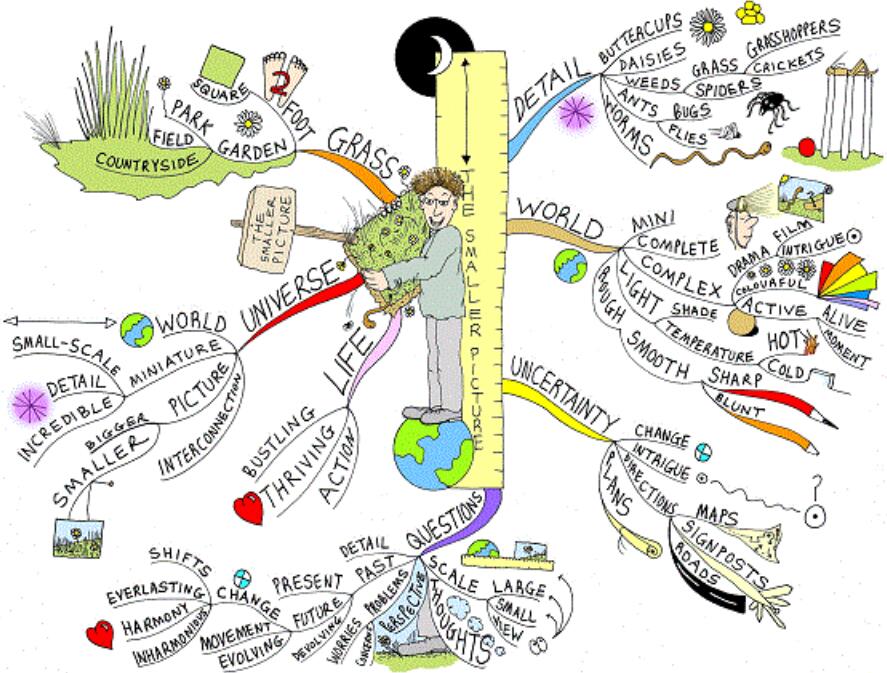 THE SMALLER PICTURE
THE
SMALLER
PICTURE
GRASS
FOOT
2
SQUARE
GARDEN
PARK
FIELD
COUNTRYSIDE
DETAIL
BUTTERCUPS
DAISIES
WEEDS
GRASS
GRASSHOPPERS
CRICKETS
SPIDERS
ANTS
BUGS
FLIES
WORMS
WORLD
MINI
COMPLETE
COMPLEX
DRAMA
FILM
INTRIGUE
COLOURFUL
ACTIVE
ALIVE
MOMENT
LIGHT
SHADE
TEMPERATURE
HOT
COLD
ROUGH
SMOOTH
SHARP
BLUNT
UNCERTAINTY
CHANGE
INTRIGUE
?
DIRECTIONS
MAPS
SIGNPOSTS
ROADS
PLANS
QUESTIONS
SCALE
LARGE
SMALL
THOUGHTS
PERSPECTIVE
PROBLEMS
WORRIES
CONCERNS
DETAIL
PAST
PRESENT
FUTURE
DEVOLVING
CHANGE
SHIFTS
EVERLASTING
HARMONY
INHARMONIOUS
MOVEMENT
EVOLVING
LIFE
BUSTLING
THRIVING
ACTION
UNIVERSE
WORLD
MINIATURE
SMALL-SCALE
DETAIL
INCREDIBLE
PICTURE
BIGGER
SMALLER
INTERCONNECTION